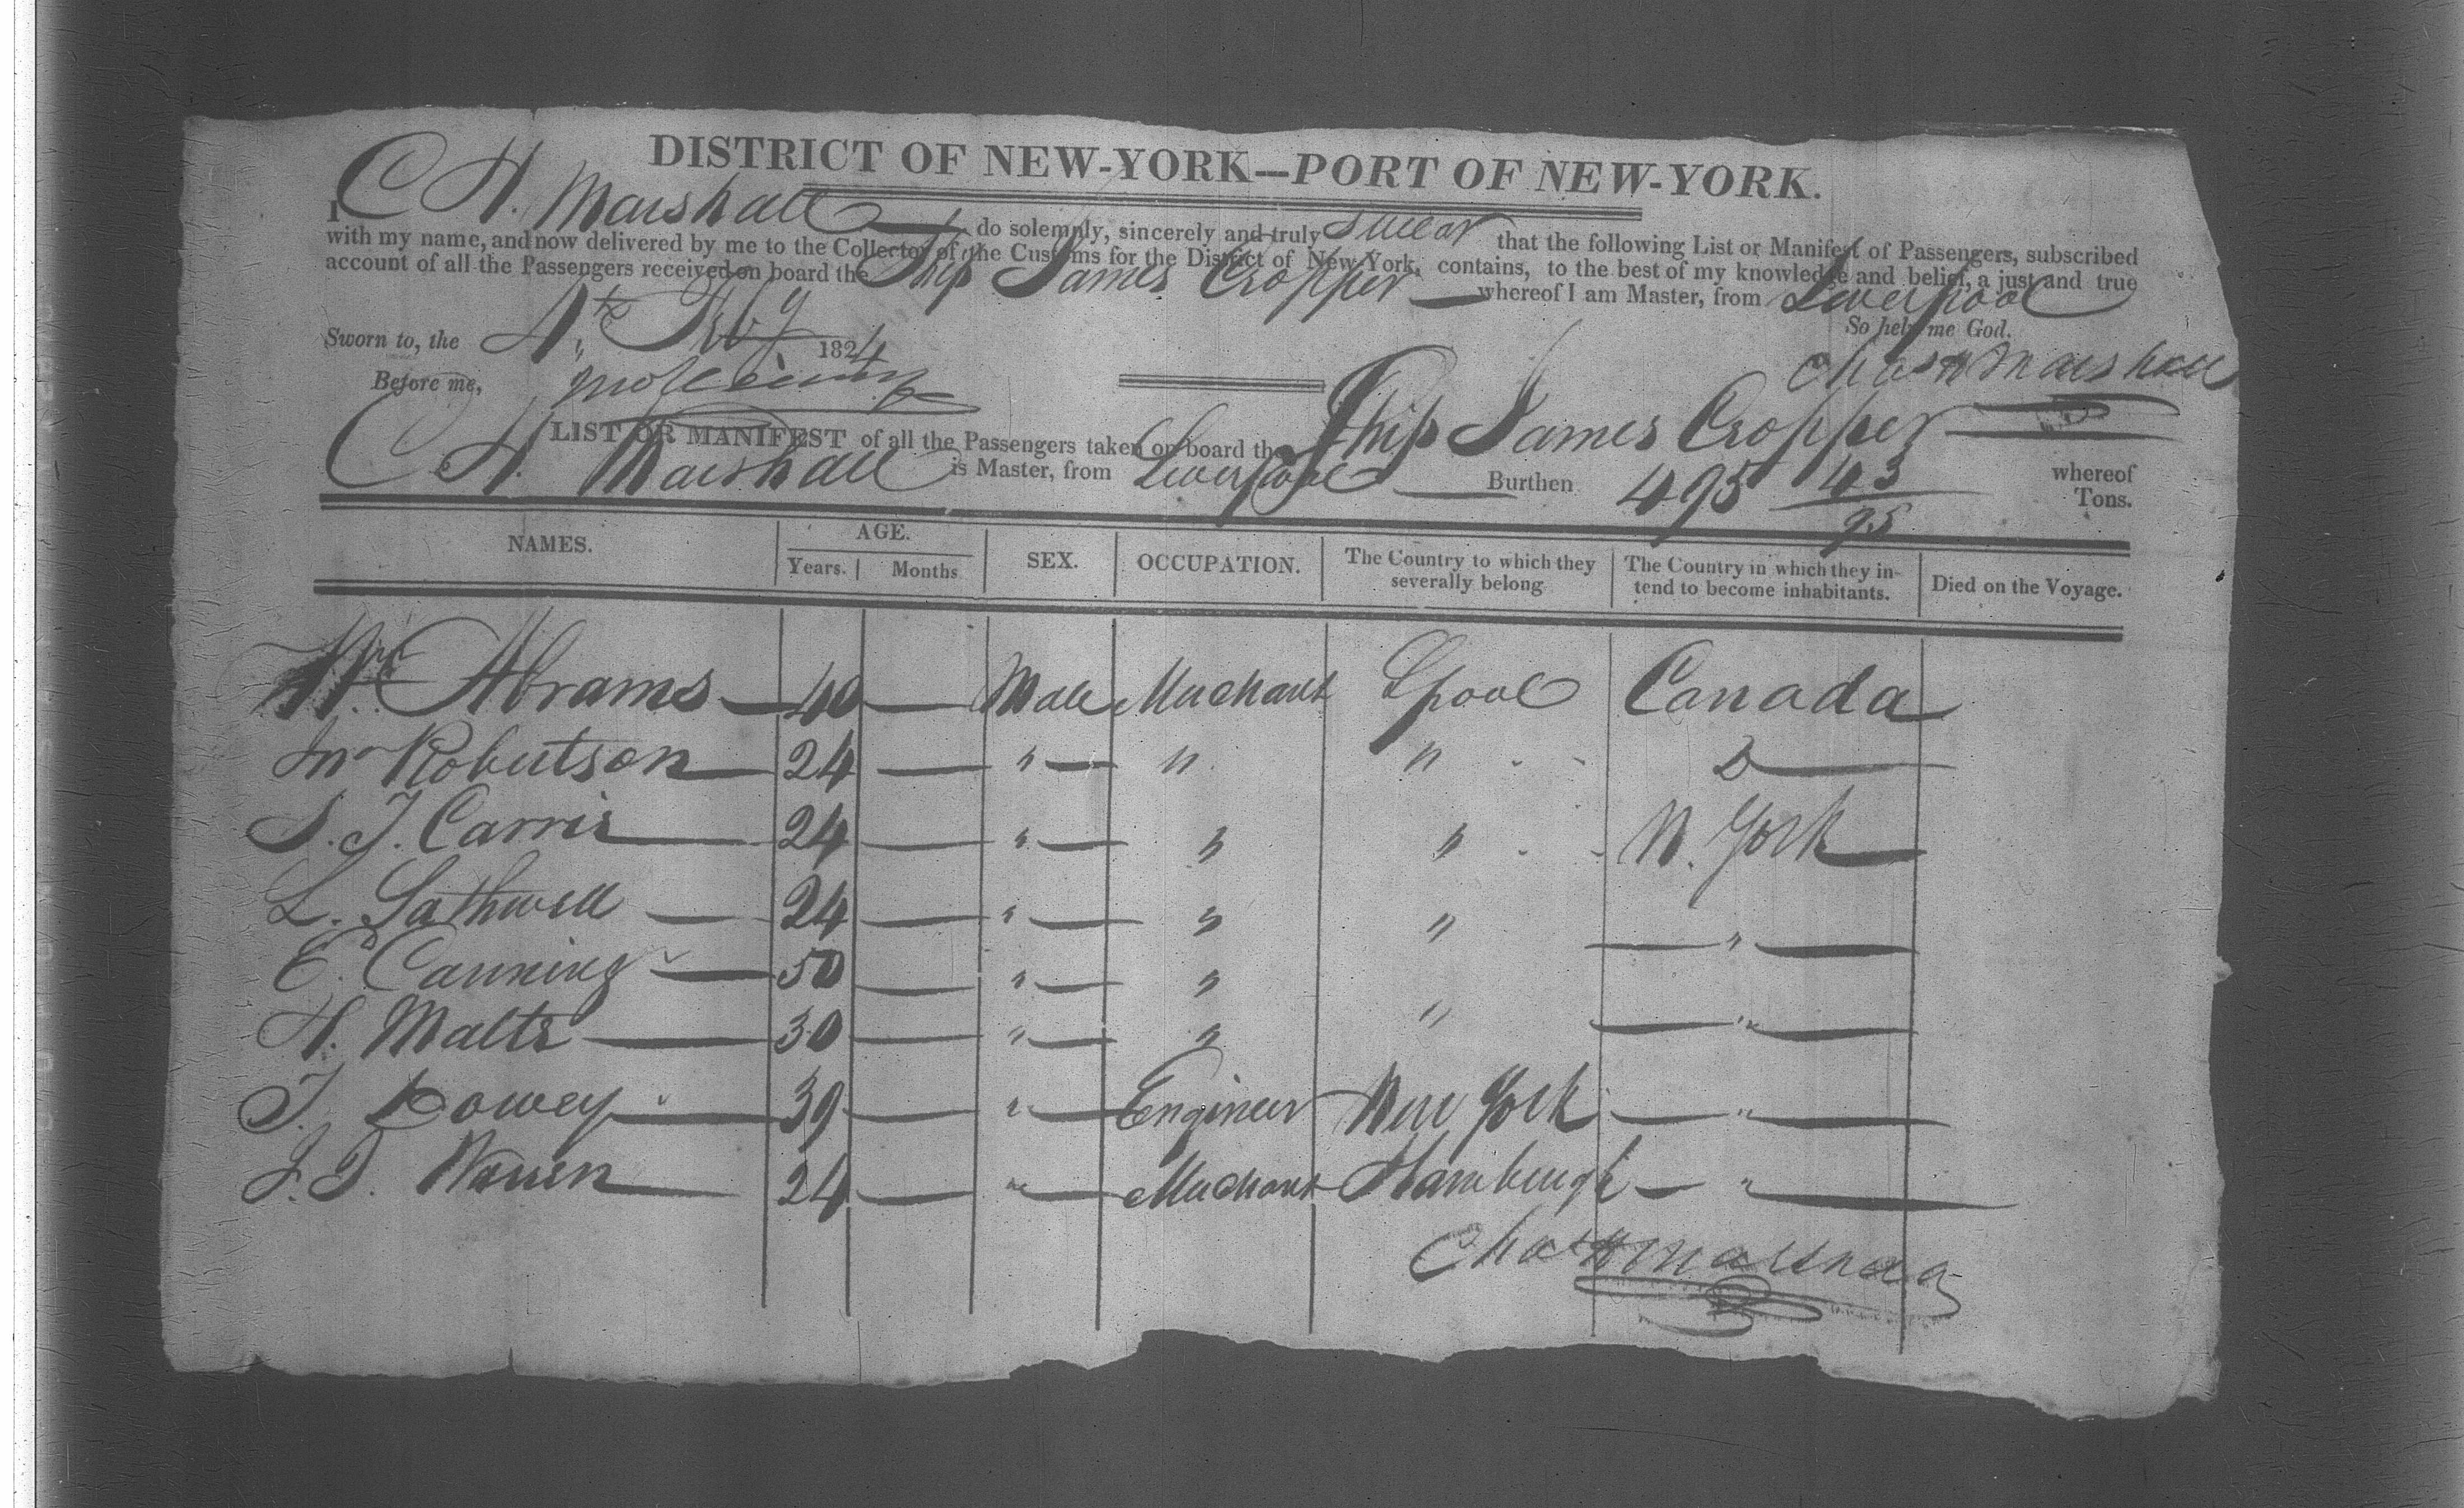 DISTRICT OF NEW-YORK—PORT OF NEW-YORK.
I C H. Marshall do solemnly, sincerely and truly swear that the following List or Manifest of Passengers, subscribed
with my name, and now delivered by me to the Collector of the Customs for the District of New York, contains, to the best of my knowledge and belief, a just and true
account of all the Passengers received on board the Ship James Cropper whereof I am Master, from Liverpool
So help me God.
Sworn to, the 4th Feby 1824
Chas H Marshall
Before me,
LIST OR MANIFEST of all the Passengers taken on board the Ship James Cropper whereof
C H. Marshall is Master, from Liverpool Burthen 495 43/95 Tons.
NAMES. AGE. Years. Months SEX. OCCUPATION. The Country to which they severally belong The Country in which they intend to become inhabitants. Died on the Voyage.
Abrams — 40 — Male Merchant Lpool Canada
Robertson — 24 — " — " " D —
S. J. Carris — 24 — " — " " N. York —
L. Sathwell — 24 — " — " " — " —
E. Canning — 50 — " — "
H. Malts — 30 — " — " " — " —
J. Lowey — 39 — " — Engineer New York — " —
J. D. Warren — 24 — " — Merchant Hamburgh — " —
Chas H Marshall